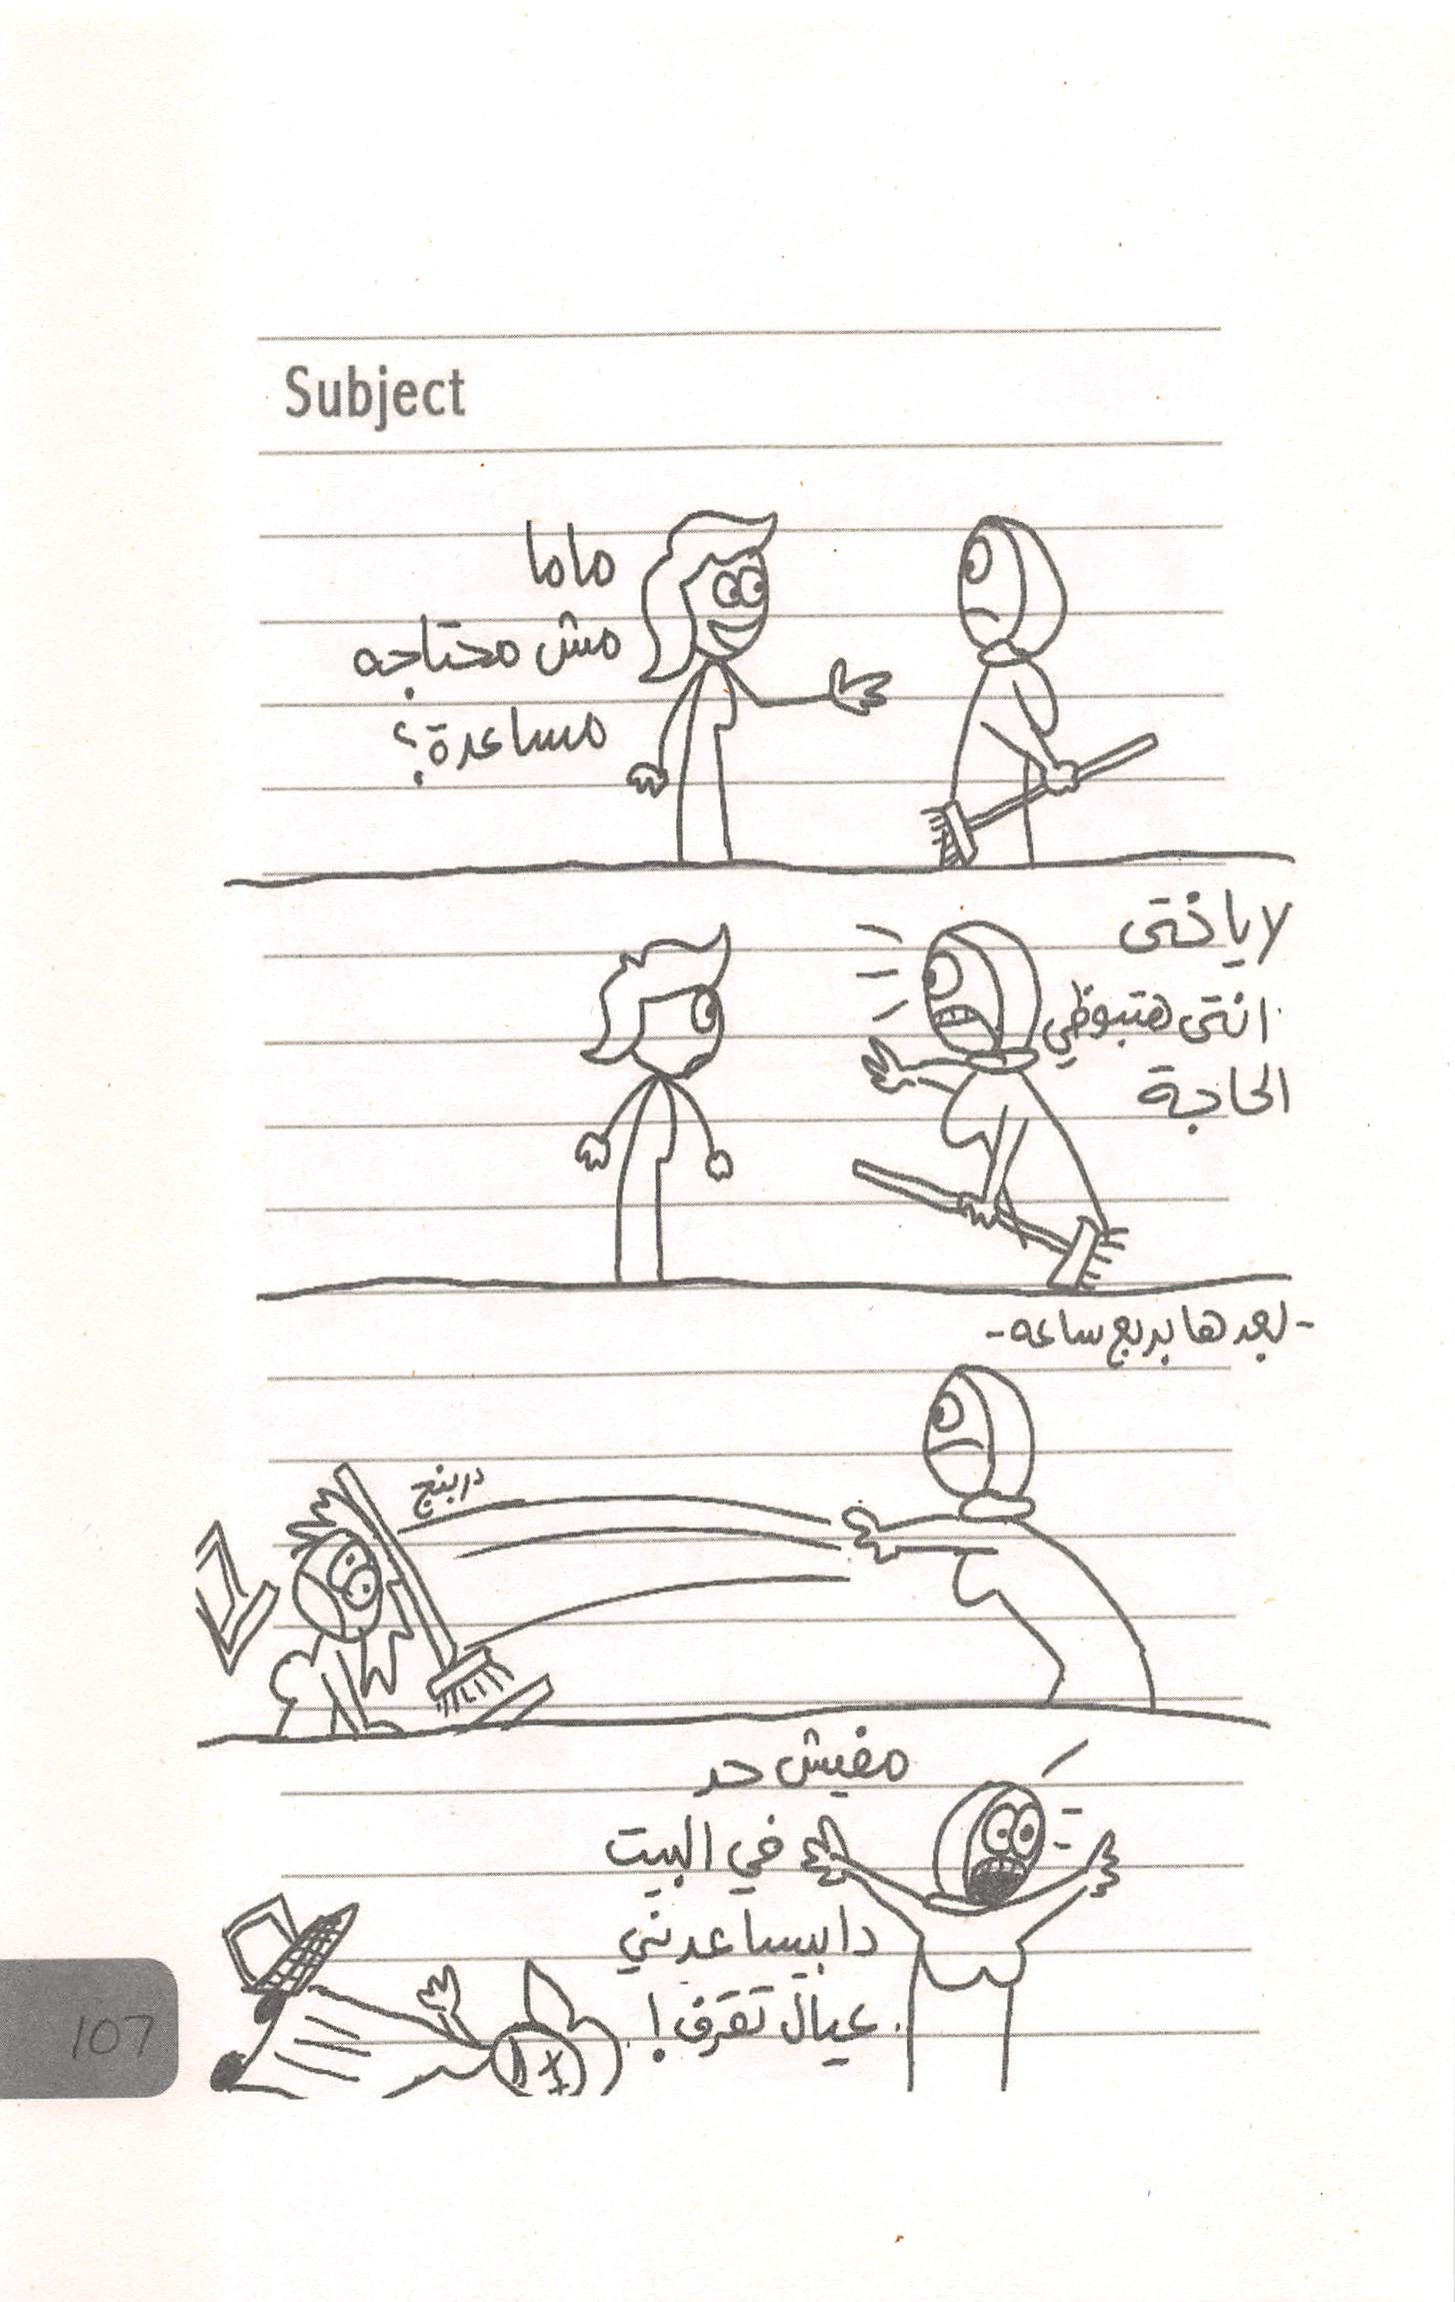 Subject
ماما
مش محتاجه
مساعدة؟
لا ياختى
انتى هتبوظي
الحاجة
- بعدها بربع ساعه -
درينج
مفيش حد
في البيت
دا بيساعدني
عيال تقرف!
107